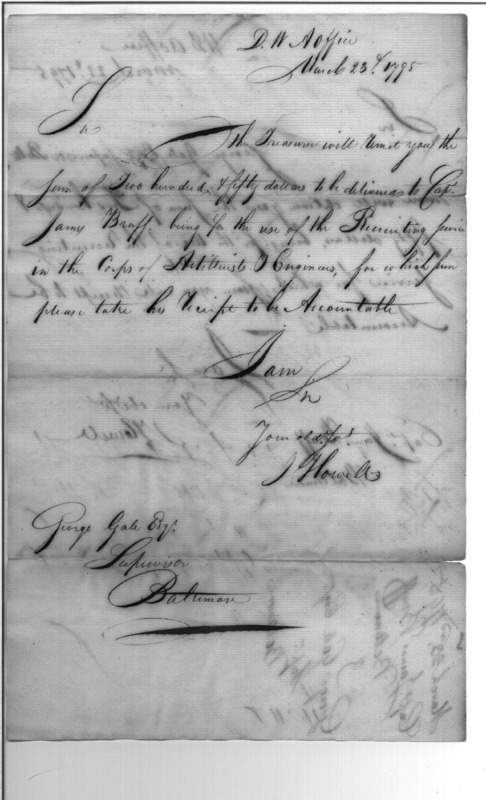 D. W. A office
March 23d 1795
Sir
The Treasurer will remit you the
sum of Two hundred & fifty dollars to be delivered to Capt.
James Bruff. being for the use of the Recruiting service
in the Corps of Artillerists & Engineers, for which sum
please take his Receipt to be Accountable
I am
Sir
Your obdt. Servt
J Howell
George Gale Esqr.
Supervisor
Baltimore